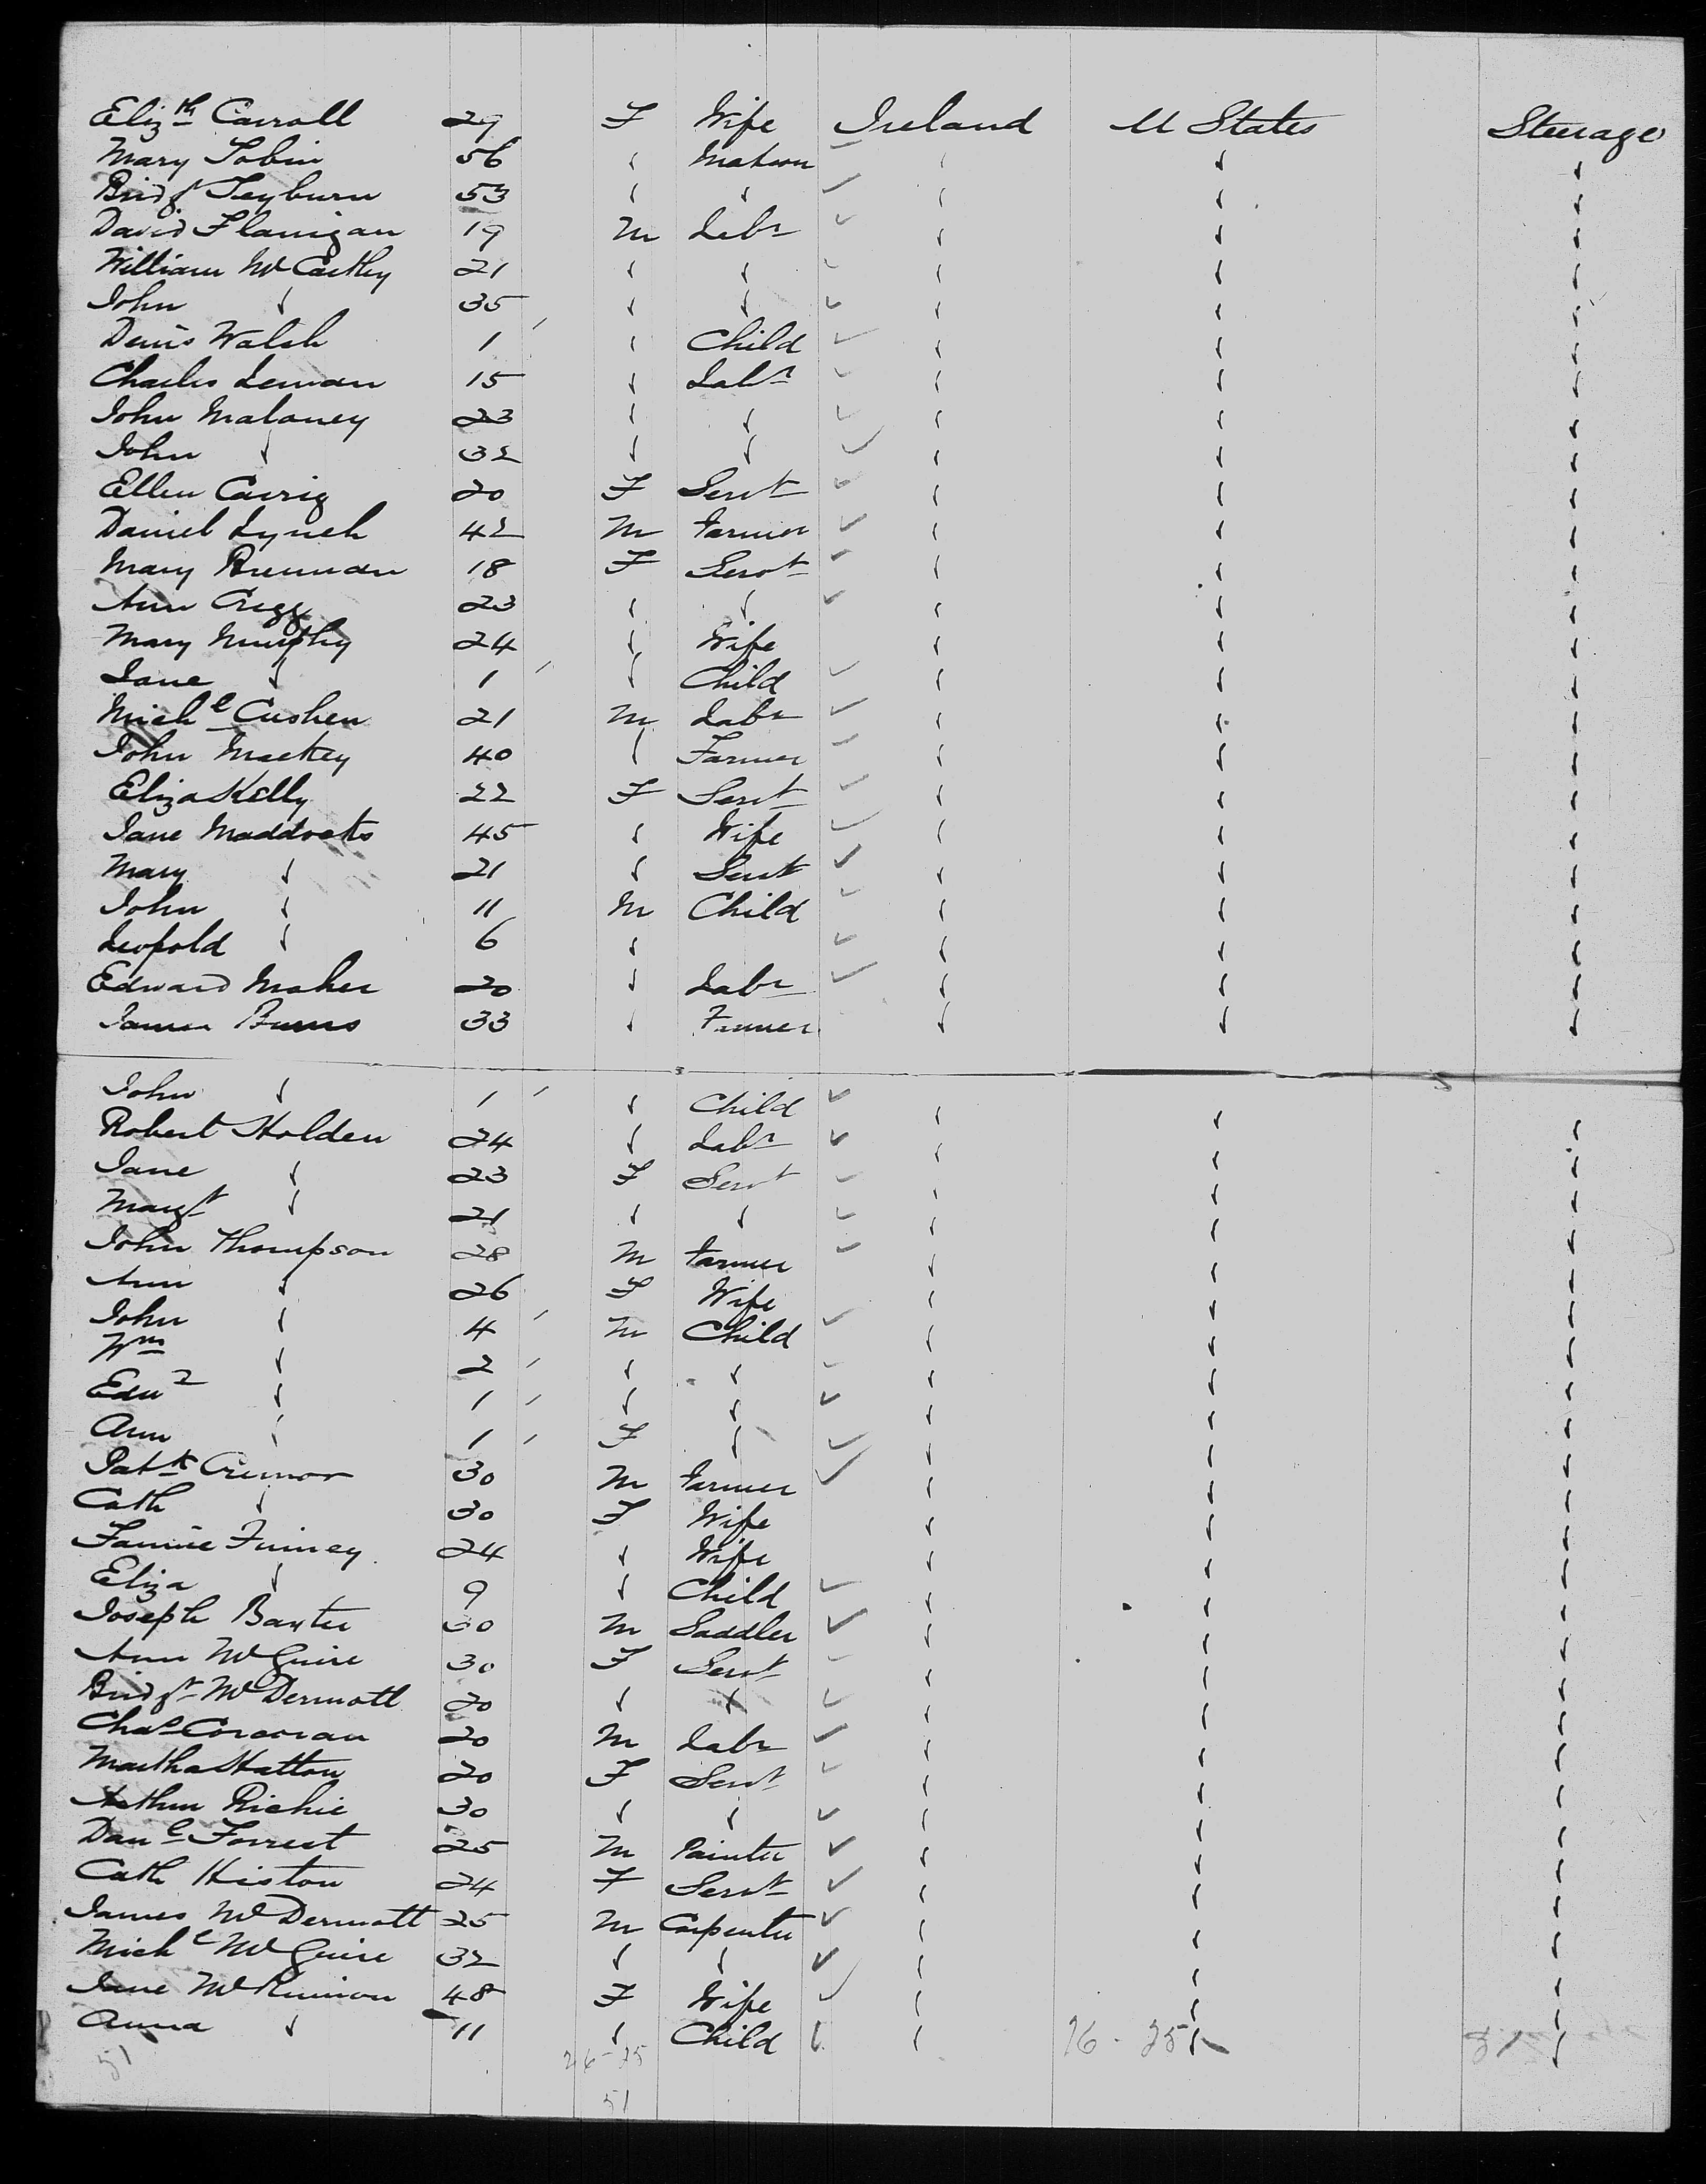 Elizth Carroll 29 F Wife Ireland U States Steerage
Mary Tobin 56 Matron
Bridgt Teyburn 53
David Flanigan 19 M Labr
William McCarthy 21
John 35
Denis Walsh 1 Child
Charles Leman 15 Labr
John Maloney 23
John 32
Ellen Carrig 20 F Servt
Daniel Lynch 42 M Farmer
Mary Brennan 18 F Servt
Ann Cregg 23
Mary Murphy 24 Wife
Jane 1 Child
Michl Cushen 21 M Labr
John Mackey 40 Farmer
Eliza Kelly 22 F Servt
Jane Maddocks 45 Wife
Mary 21 Servt
John 11 M Child
Leopold 6
Edward Maher 20 Labr
James Burns 33 Farmer
John 1 Child
Robert Holden 24 Labr
Jane 23 F Servt
Margt 21
John Thompson 28 M Farmer
Ann 26 F Wife
John 4 M Child
Wm 2
Edwd 1
Ann 1 F
Patk 30 M Farmer
Cath 30 F Wife
Fannie Finney 24 Wife
Eliza 9 Child
Joseph Baxter 30 M Saddler
Ann McGuire 30 F Servt
Bridgt McDermott 20
Chas Corcoran 20 M Labr
Martha Hatton 20 F Servt
Arthur Richie 30
Danl Forrest 25 M Painter
Cath Histon 24 F Servt
James McDermott 25 M Carpenter
Michl McGuire 32
Jane McKinnon 48 F Wife
Anna 11 Child
51 26-25 26-25 51
51